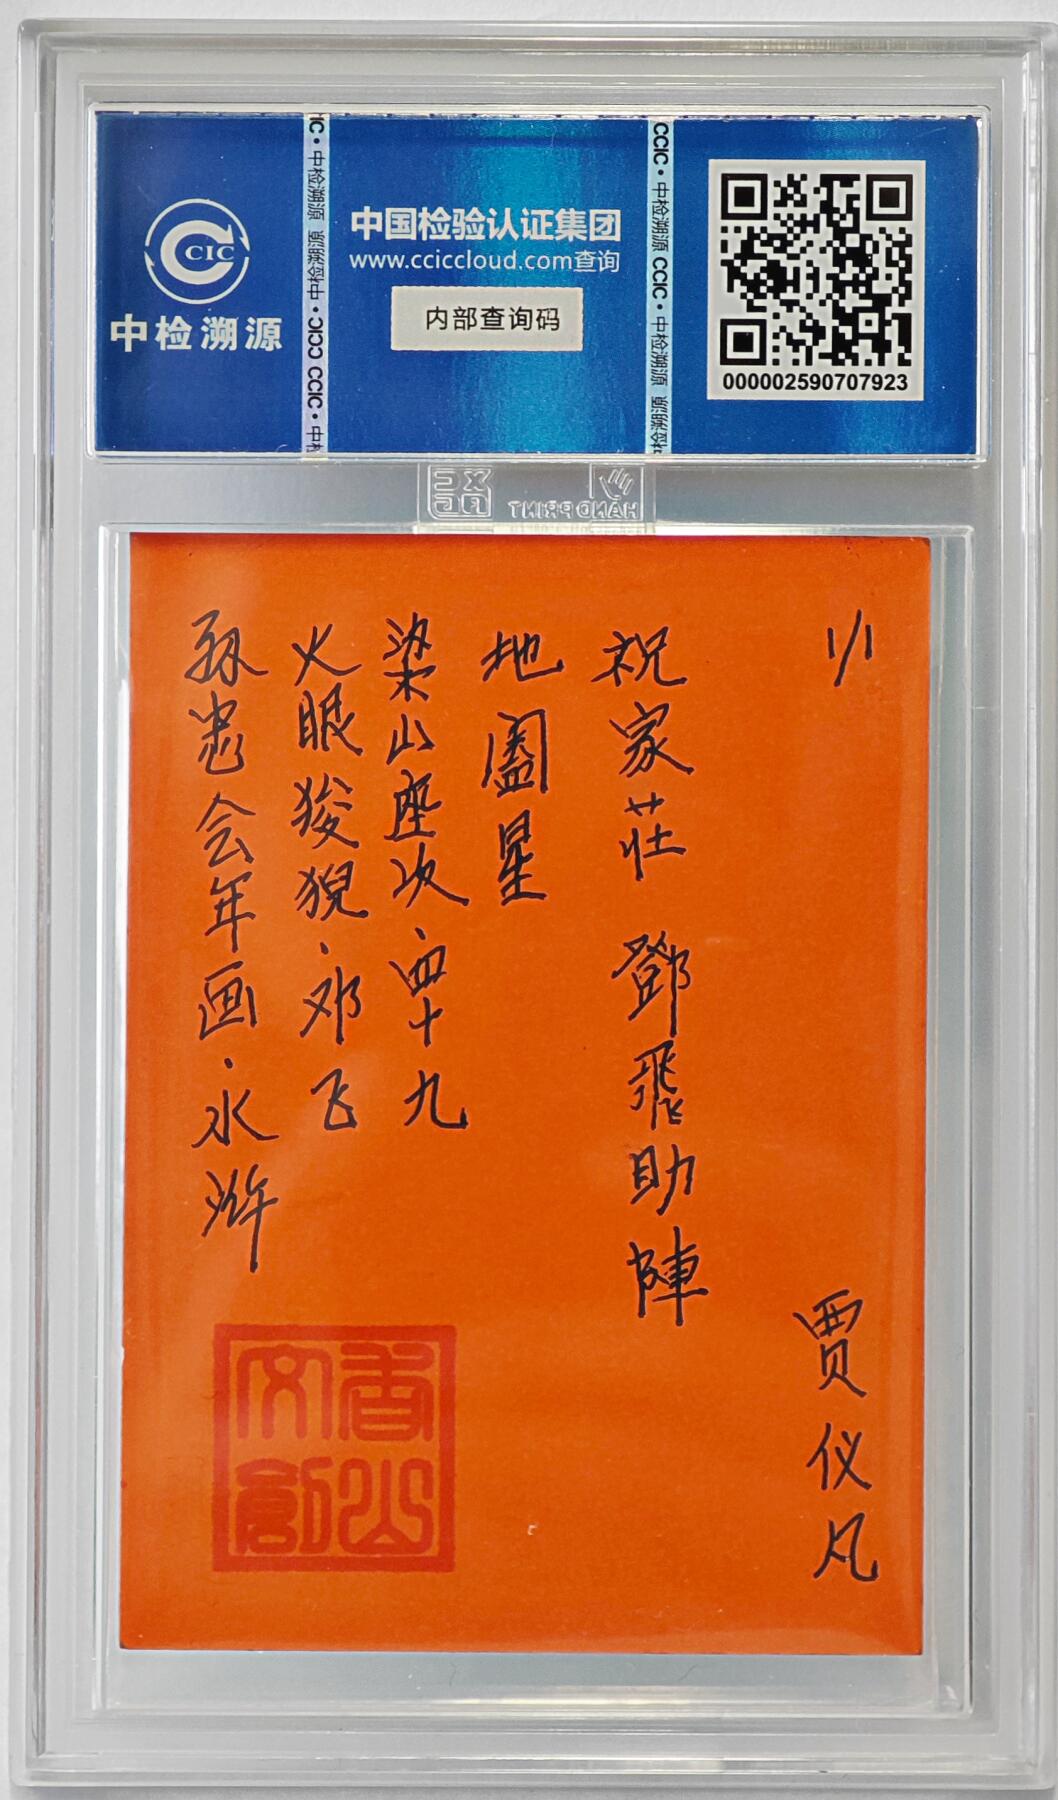 CIC
中检溯源
中国检验认证集团
www.cciccloud.com查询
内部查询码
000002590707923
CCIC·中检溯源 CCIC·中检溯源 中检溯源
HAND PRINT
1/1
贾仪凡
祝家莊 鄧飛助陣
地阖星
梁山座次·四十九
火眼狻猊·邓飞
孙忠会年画·水浒
香山文創